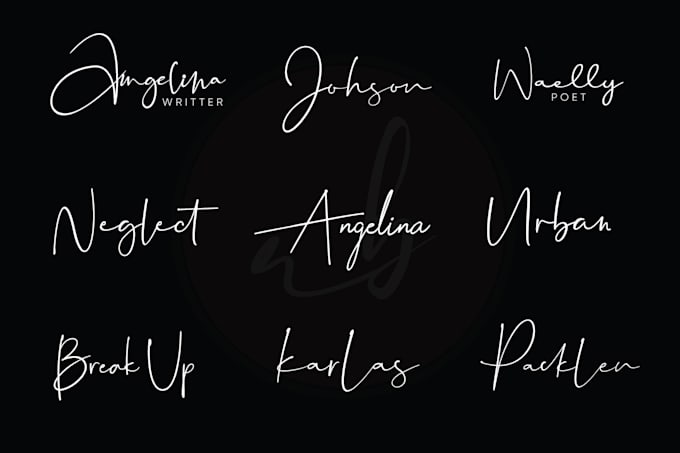 Angelina
WRITTER
Johson
Waelly
POET
Neglect
Angelina
Urban
Break Up
Karlas
Packlen